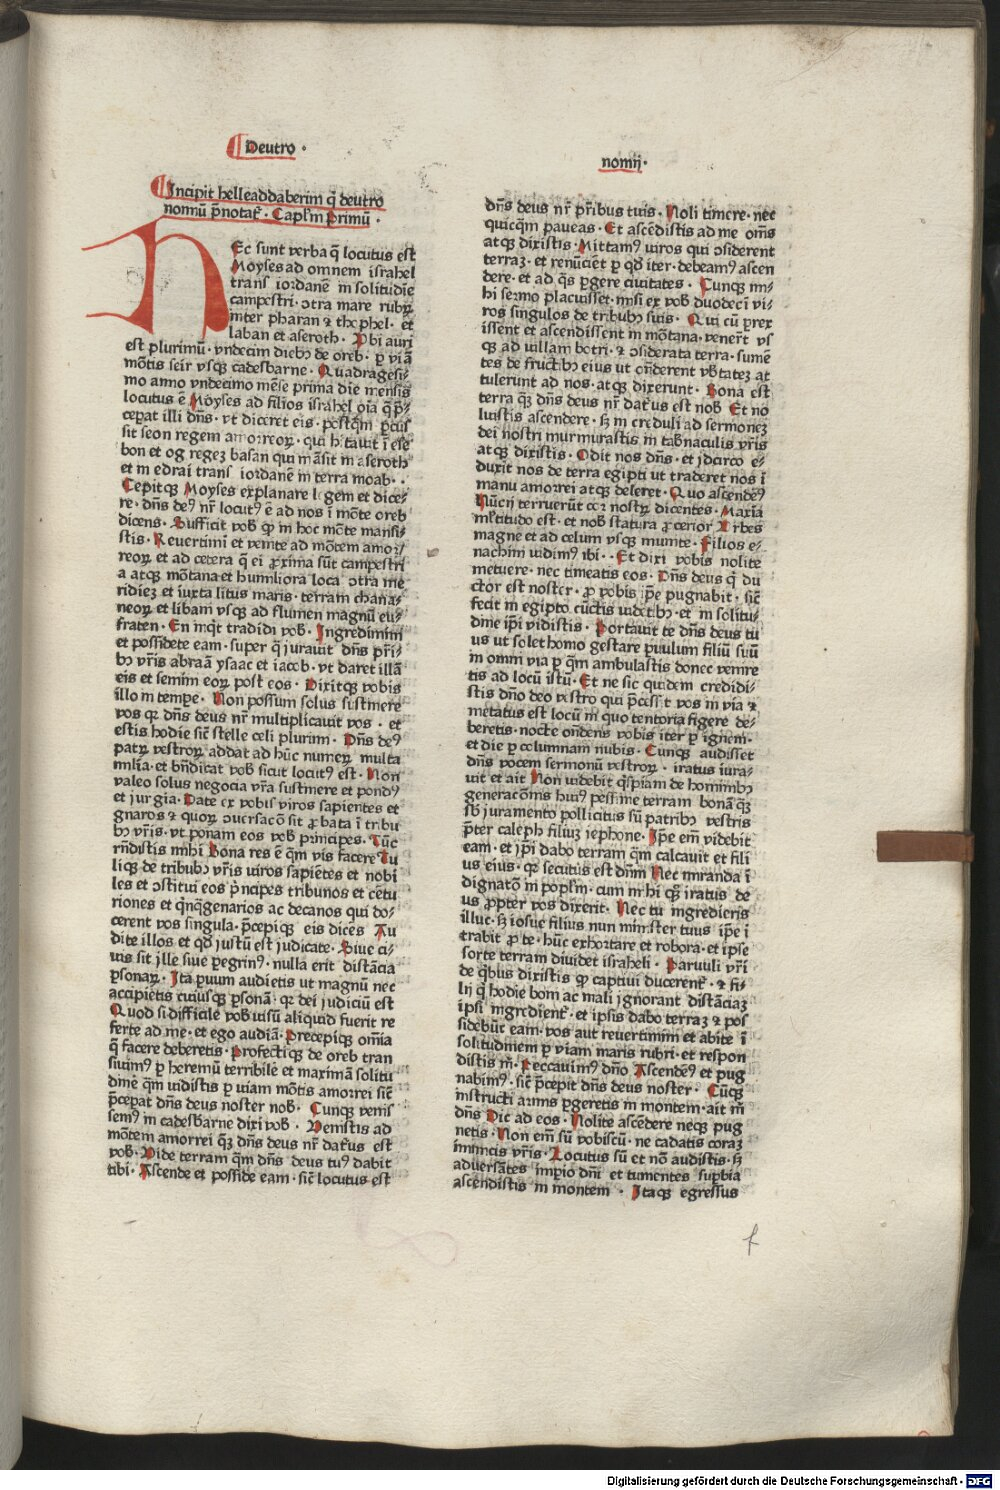 Deutro ·
nomij·
Incipit helleaddaberim q̄ deutro
nomiū p̄notať · Capľm Primū ·
HEc sunt verba q̄ locutus est
Moyses ad omnem israhel
trans iordanē in solitudīe
campestri · ↄtra mare rubꝝ
inter pharan ⁊ thophel · et
laban et aseroth · Vbi auri
est plurimū · vndecim diebꝫ de oreb · ꝑ viā
mōtis seir vsqꝫ cadesbarne · Quadragesi⸗
mo anno vndecimo mēse prima die mensis
locutus ē Moyses ad filios israhel oīa q̄ p̄⸗
ceꝑat illi dn̄s · vt diceret eis · postq̄m ꝑcus
sit seon regem amorreoꝝ · qui hītauit ī ese
bon et og regeꝫ basan qui māsit in aseroth
et in edrai trans iordanē in terra moab · ·
Cepitqꝫ Moyses explanare legem et dice⸗
re · dn̄s deꝰ nr̄ locutꝰ ē ad nos ī mōte oreb
dicens · Sufficit vob̄ qꝫ in hoc mōte mansi⸗
stis · Reuertimī et venite ad mōtem amor⸗
reoꝝ et ad cetera q̄ ei ꝓxima sūt campestri
a atqꝫ mōtana et humiliora loca ↄtra me
ridieꝫ et iuxta litus maris · terram chana⸗
neoꝝ et libani vsqꝫ ad flumen magnū eu⸗
fraten · En inq̄t tradidi vob̄ · Ingredimini
et possidete eam · super q̄ jurauit dn̄s pr̄i⸗
bꝫ vr̄is abraā ysaac et iacob · vt daret illā
eis et semini eoꝝ post eos · Dixitqꝫ vobis
illo in tempe · Non possum solus sustinere
vos qꝛ dn̄s deus nr̄ multiplicauit vos · et
estis hodie sic̄ stelle celi plurimi · Dn̄s deꝰ
patꝝ vestroꝝ addat ad hūc numeꝝ multa
milia · et bn̄dicat vob̄ sicut locutꝰ est · Non
valeo solus negocia vr̄a sustinere et pondꝰ
et jurgia · Date ex vobis viros sapientes et
gnaros ⁊ quoꝝ ↄuersacō sit ꝓbata ī tribu
bꝫ vr̄is · vt ponam eos vob̄ principes · Tūc
rn̄distis mihi Bona res ē q̄m vis facere Tu
liqꝫ de tribubꝫ vr̄is viros sapiētes et nobi
les et ↄstitui eos p̄ncipes tribunos et cētu
riones et q̄nq̄genarios ac decanos qui do⸗
cerent vos singula · p̄cepiqꝫ eis dicēs Au
dite illos et qd̄ justū est judicate · Siue ci⸗
uis sit jlle siue ꝑegrinꝰ · nulla erit distācia
ꝑsonaꝝ · Ita ꝑuum audietis ut magnū nec
accipietis cuiusqꝫ ꝑsonā · qꝛ dei judiciū est
Quod si difficile vob̄ visū aliquid fuerit re
ferte ad me · et ego audiā · Precepiqꝫ om̄ia
q̄ facere deberetis · Profectiqꝫ de oreb tran
siuimꝰ ꝑ heremū terribilē et maximā solitu
dinē q̄m vidistis ꝑ viam mōtis amorrei sic̄
p̄ceꝑat dn̄s deus noster nob̄ · Cunqꝫ venis
semꝰ in cadesbarne dixi vob̄ · Venistis ad
mōtem amorrei q̄ꝫ dn̄s deus nr̄ daťus est
vob̄ · Vide terram q̄m dn̄s deus tuꝰ dabit
tibi · Ascende et posside eam · sic̄ locutus est
dn̄s deus nr̄ pr̄ibus tuis · Noli timere · nec
quicq̄m paueas · Et ascēdistis ad me om̄s
atqꝫ dixistis · Mittamꝰ viros qui ↄsiderent
terraꝫ · et renūciēt ꝑ qd̄ iter · debeamꝰ ascen
dere · et ad q̄s ꝑgere ciuitates · Cunqꝫ mi⸗
hi sermo placuisset · misi ex vob̄ duodecī vi⸗
ros singulos de tribubꝫ suis · Qui cū ꝑrex
issent et ascendissent in mōtana · venerť vs
qꝫ ad uallam botri · ⁊ ↄsiderata terra · sumē
tes de fructibꝫ eius ut on̄derent vb̄tateꝫ at
tulerunt ad nos · atqꝫ dixerunt · Bona est
terra q̄ꝫ dn̄s deus nr̄ daťus est nob̄ Et no
luistis ascendere · sꝫ in creduli ad sermoneꝫ
dei nostri murmurastis in tab̄naculis vr̄is
atqꝫ dixistis · Odit nos dn̄s · et jdcirco e⸗
duxit nos de terra egipti ut traderet nos ī
manu amorrei atqꝫ deleret · Quo ascendeꝰ
Nūcij terruerūt cor nostꝝ dicentes · Maxīa
mľtitudo est · et nob̄ statura ꝓcerior Vrbes
magne et ad celum vsqꝫ munite · Filios e⸗
nachim uidimꝰ ibi · · Et dixi vobis nolite
metuere · nec timeatis eos · Dn̄s deus q̄ du
ctor est noster · ꝓ vobis ip̄e pugnabit · sic̄
fecit in egipto cūctis uidētibꝫ · et in solitu⸗
dine ip̄i vidistis · Portauit te dn̄s deus tu
us ut solet homo gestare ꝑuulum filiū suū
in omni via ꝑ q̄m ambulastis donec venire
tis ad locū istū · Et ne sic quidem credidi⸗
stis dn̄o deo vestro qui p̄cessit vos in via ⁊
metatus est locū in quo tentoria figere de⸗
beretis · nocte ondens vobis iter ꝑ ignem ·
et die ꝑ columnam nubis · Cunqꝫ audisset
dn̄s vocem sermonū vestroꝝ · iratus iura⸗
uit et ait Non videbit q̄spiam de hominibꝫ
generacōnis huiꝰ pessime terram bonā q̄ꝫ
sb̄ juramento pollicitus sū patribꝫ vestris
p̄ter caleph filiuꝫ iephone · Ip̄e em̄ videbit
eam · et ip̄i dabo terram q̄m calcauit et fili
us eius · qꝛ secutus est dn̄m Nec miranda ī
dignatō in popľm · cum mihi qꝫ iratus de
us ꝓpter vos dixerit · Nec tu ingredieris
illuc · sꝫ iosue filius nun minister tuus ip̄e ī
trabit ꝓ te · hūc exhortare et robora · et ipse
sorte terram diuidet israheli · Paruuli vr̄i
de q̄bus dixistis qꝫ captiui ducerenť · ⁊ fi⸗
lij q̄ hodie boni ac mali ignorant distāciaꝫ
ipsi ingredienť · et ipsis dabo terraꝫ ⁊ pos
sidebūt eam · vos aut reuertimini et abite ī
solitudinem ꝑ viam maris rubri · et respon
distis m̄ · Peccauimꝰ dn̄o Ascendeꝰ et pug
nabimꝰ · sic̄ p̄cepit dn̄s deus noster · Cūqꝫ
instructi armis ꝑgeretis in montem · ait m̄
dn̄s Dic ad eos · Nolite ascēdere neqꝫ pug
netis · Non em̄ sū vobiscū · ne cadatis coraꝫ
inimicis vr̄is · Locutus sū et nō audistis · sꝫ
aduersātes imꝑio dn̄i et tumentes suꝑbia
ascendistis in montem · Itaqꝫ egressus
f
Digitalisierung gefördert durch die Deutsche Forschungsgemeinschaft · DFG